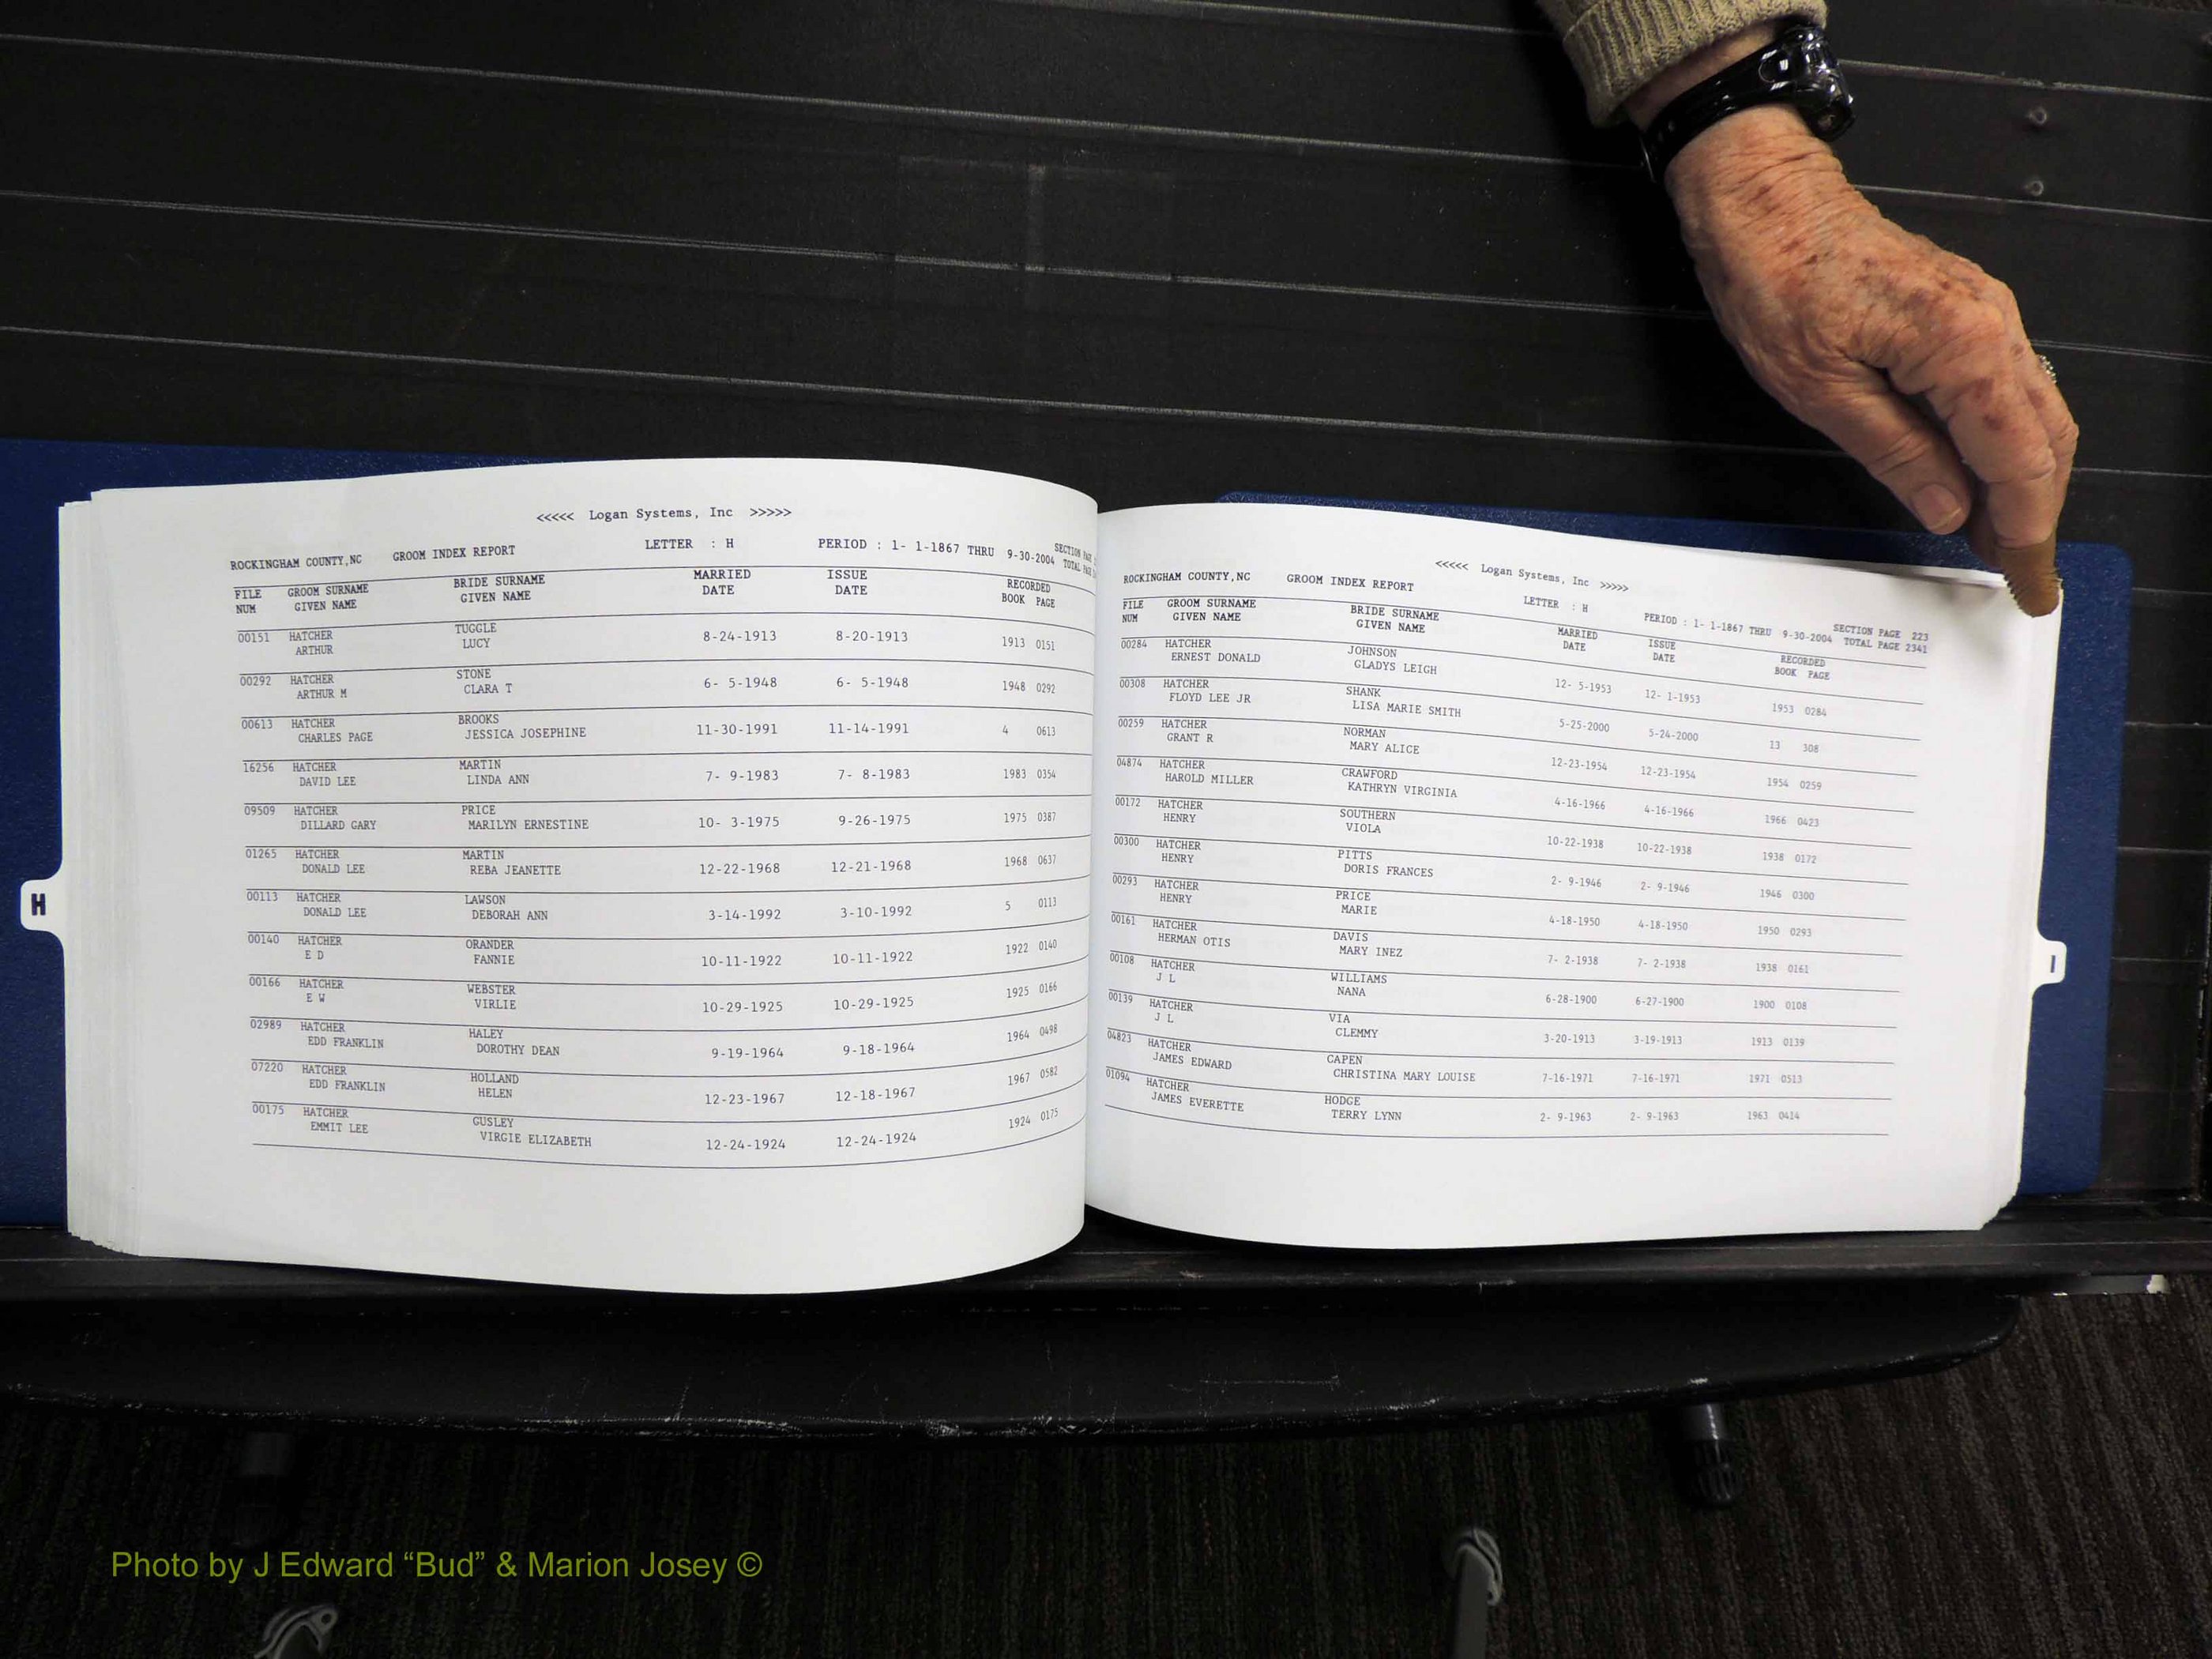 <<<<< Logan Systems, Inc >>>>>
ROCKINGHAM COUNTY,NC GROOM INDEX REPORT LETTER : H PERIOD : 1- 1-1867 THRU 9-30-2004 SECTION
TOTAL
FILE GROOM SURNAME BRIDE SURNAME MARRIED ISSUE RECORDED
NUM GIVEN NAME GIVEN NAME DATE DATE BOOK PAGE
00151 HATCHER TUGGLE 8-24-1913 8-20-1913 1913 0151
ARTHUR LUCY
00292 HATCHER STONE 6- 5-1948 6- 5-1948 1948 0292
ARTHUR M CLARA T
00613 HATCHER BROOKS 11-30-1991 11-14-1991 4 0613
CHARLES PAGE JESSICA JOSEPHINE
16256 HATCHER MARTIN 7- 9-1983 7- 8-1983 1983 0354
DAVID LEE LINDA ANN
09509 HATCHER PRICE 10- 3-1975 9-26-1975 1975 0387
DILLARD GARY MARILYN ERNESTINE
01265 HATCHER MARTIN 12-22-1968 12-21-1968 1968 0637
DONALD LEE REBA JEANETTE
00113 HATCHER LAWSON 3-14-1992 3-10-1992 5 0113
DONALD LEE DEBORAH ANN
00140 HATCHER ORANDER 10-11-1922 10-11-1922 1922 0140
E D FANNIE
00166 HATCHER WEBSTER 10-29-1925 10-29-1925 1925 0166
E W VIRLIE
02989 HATCHER HALEY 9-19-1964 9-18-1964 1964 0498
EDD FRANKLIN DOROTHY DEAN
07220 HATCHER HOLLAND 12-23-1967 12-18-1967 1967 0582
EDD FRANKLIN HELEN
00175 HATCHER GUSLEY 12-24-1924 12-24-1924 1924 0175
EMMIT LEE VIRGIE ELIZABETH
H
<<<<< Logan Systems, Inc >>>>>
ROCKINGHAM COUNTY,NC GROOM INDEX REPORT LETTER : H PERIOD : 1- 1-1867 THRU 9-30-2004 SECTION PAGE 223
TOTAL PAGE 2341
FILE GROOM SURNAME BRIDE SURNAME MARRIED ISSUE RECORDED
NUM GIVEN NAME GIVEN NAME DATE DATE BOOK PAGE
00284 HATCHER JOHNSON 12- 5-1953 12- 1-1953 1953 0284
ERNEST DONALD GLADYS LEIGH
00308 HATCHER SHANK 5-25-2000 5-24-2000 13 308
FLOYD LEE JR LISA MARIE SMITH
00259 HATCHER NORMAN 12-23-1954 12-23-1954 1954 0259
GRANT R MARY ALICE
04874 HATCHER CRAWFORD 4-16-1966 4-16-1966 1966 0423
HAROLD MILLER KATHRYN VIRGINIA
00172 HATCHER SOUTHERN 10-22-1938 10-22-1938 1938 0172
HENRY VIOLA
00300 HATCHER PITTS 2- 9-1946 2- 9-1946 1946 0300
HENRY DORIS FRANCES
00293 HATCHER PRICE 4-18-1950 4-18-1950 1950 0293
HENRY MARIE
00161 HATCHER DAVIS 7- 2-1938 7- 2-1938 1938 0161
HERMAN OTIS MARY INEZ
00108 HATCHER WILLIAMS 6-28-1900 6-27-1900 1900 0108
J L NANA
00139 HATCHER VIA 3-20-1913 3-19-1913 1913 0139
J L CLEMMY
04823 HATCHER CAPEN 7-16-1971 7-16-1971 1971 0513
JAMES EDWARD CHRISTINA MARY LOUISE
01094 HATCHER HODGE 2- 9-1963 2- 9-1963 1963 0414
JAMES EVERETTE TERRY LYNN
I
Photo by J Edward “Bud” & Marion Josey ©